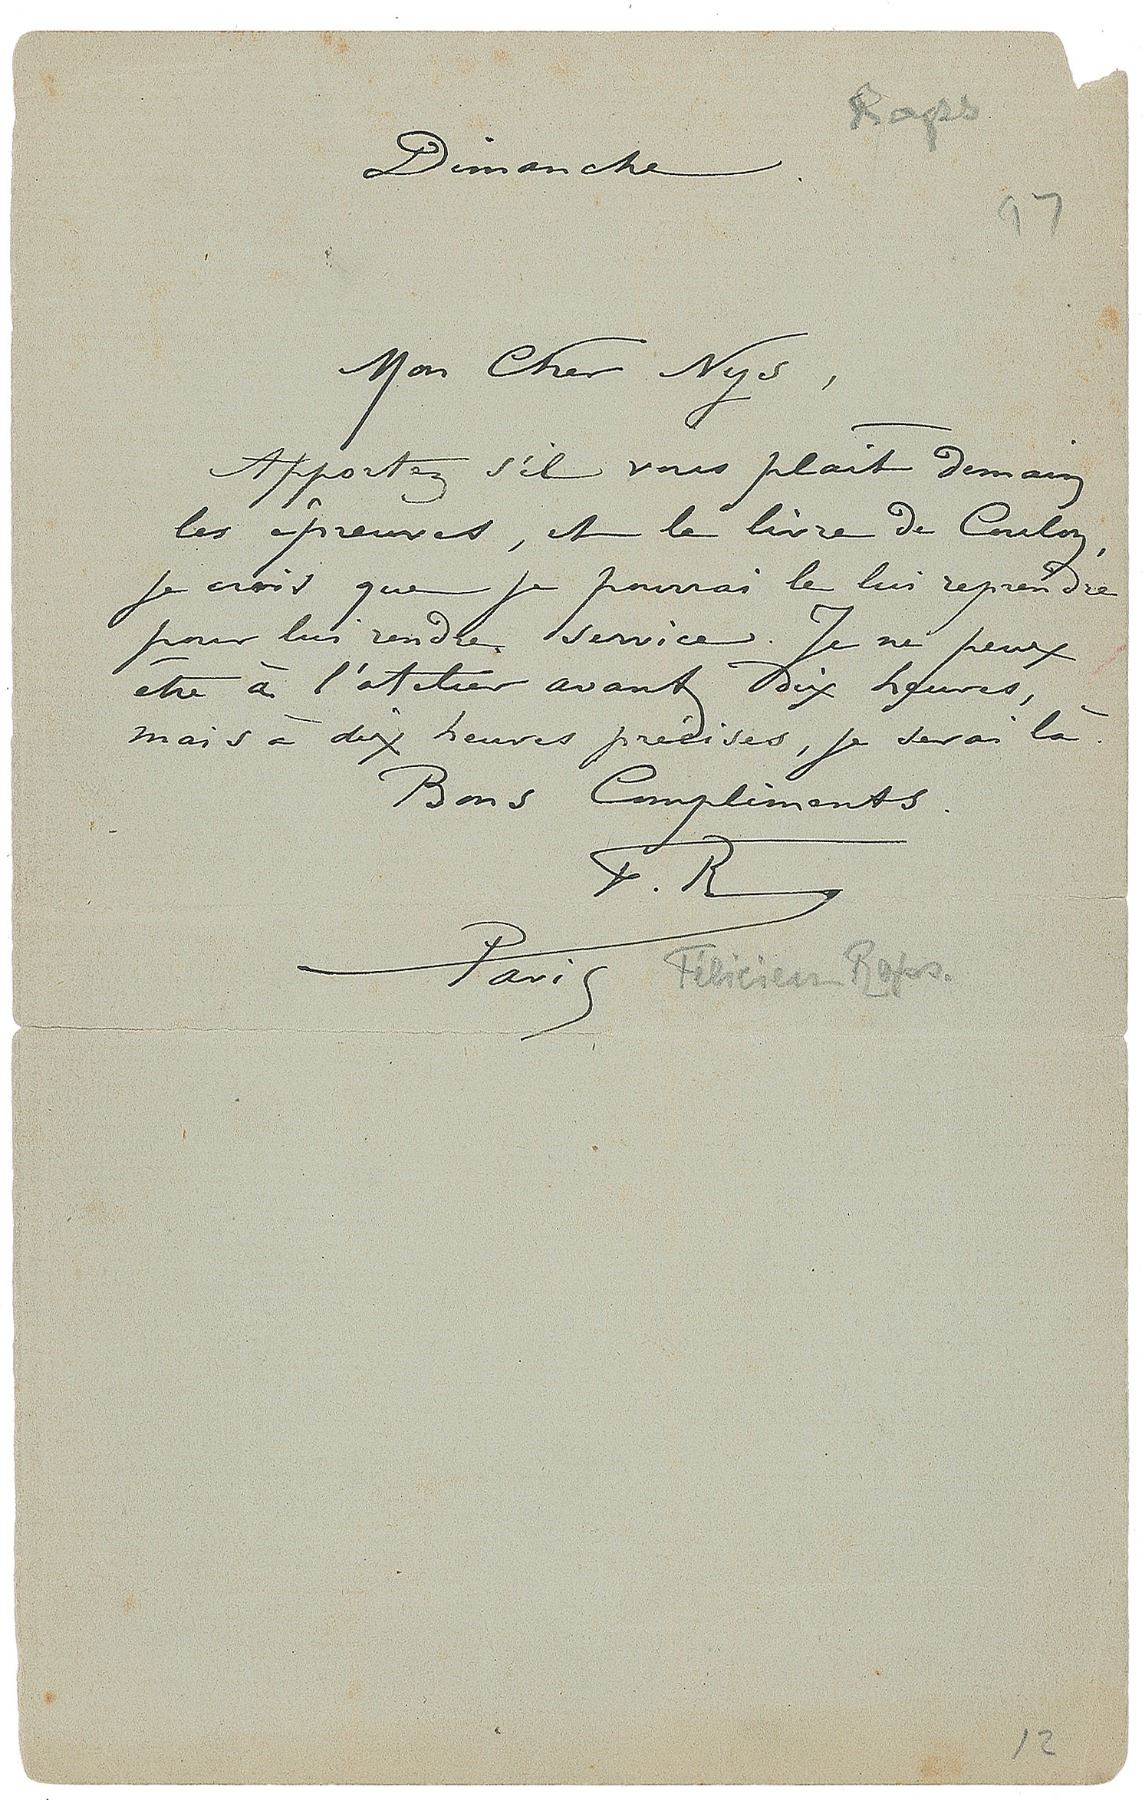 Rops
Dimanche.
97
Mon Cher Nys,
Apportez s'il vous plaît demain
les épreuves, et le livre de Coulon,
je crois que je pourrai le lui reprendre
pour lui rendre service. Je ne peux
être à l'atelier avant dix heures,
mais à dix heures précises, je serai là.
Bons Compliments.
F. R
Paris Félicien Rops.
12